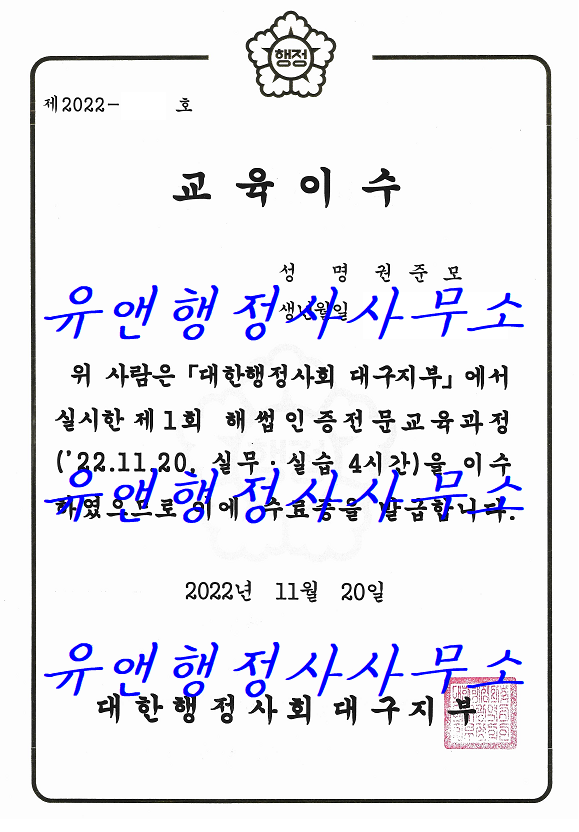 행정
제2022- 호
교육이수
성 명 권준모
생년월일
유앤행정사사무소
위 사람은 「대한행정사회 대구지부」에서
실시한 제1회 해썹인증전문교육과정
('22.11.20, 실무·실습 4시간)을 이수
유앤행정사사무소
하였으므로 이에 수료증을 발급합니다.
2022년 11월 20일
유앤행정사사무소
대한행정사회 대구지부